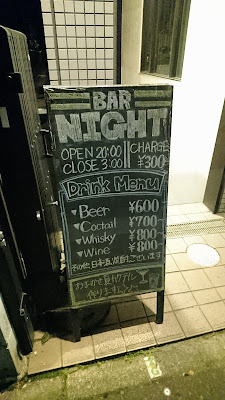 BAR
NIGHT
OPEN 20:00
CLOSE 3:00
CHARGE
¥300
Drink Menu
▼Beer ¥600
▼Coctail ¥700
▼Whisky ¥800
▼Wine ¥800
その他日本酒、焼酎もございます
おまかせ夏カクテル
作ります